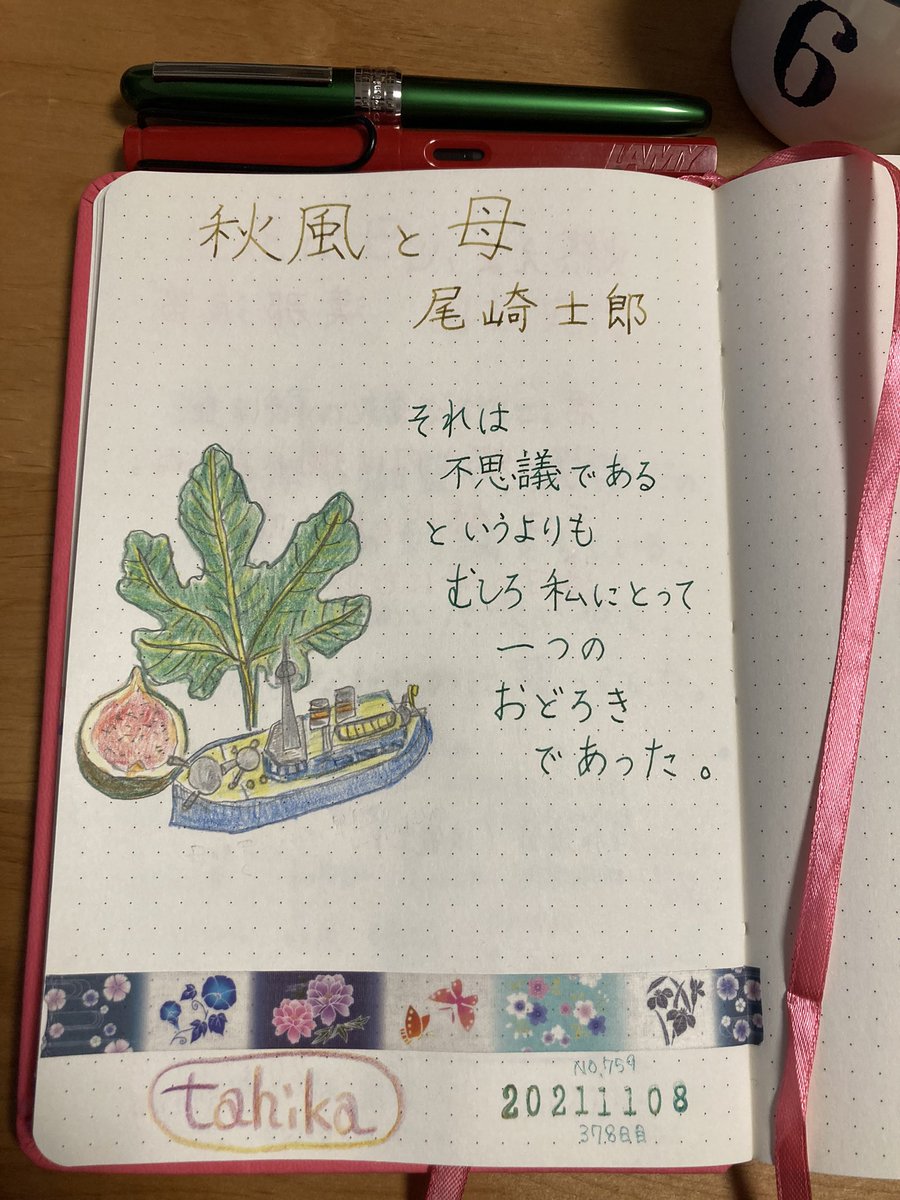 6
LAMY
秋風と母
尾崎士郎
それは
不思議である
というよりも
むしろ私にとって
一つの
おどろき
であった。
tahika
NO,759
20211108
378日目